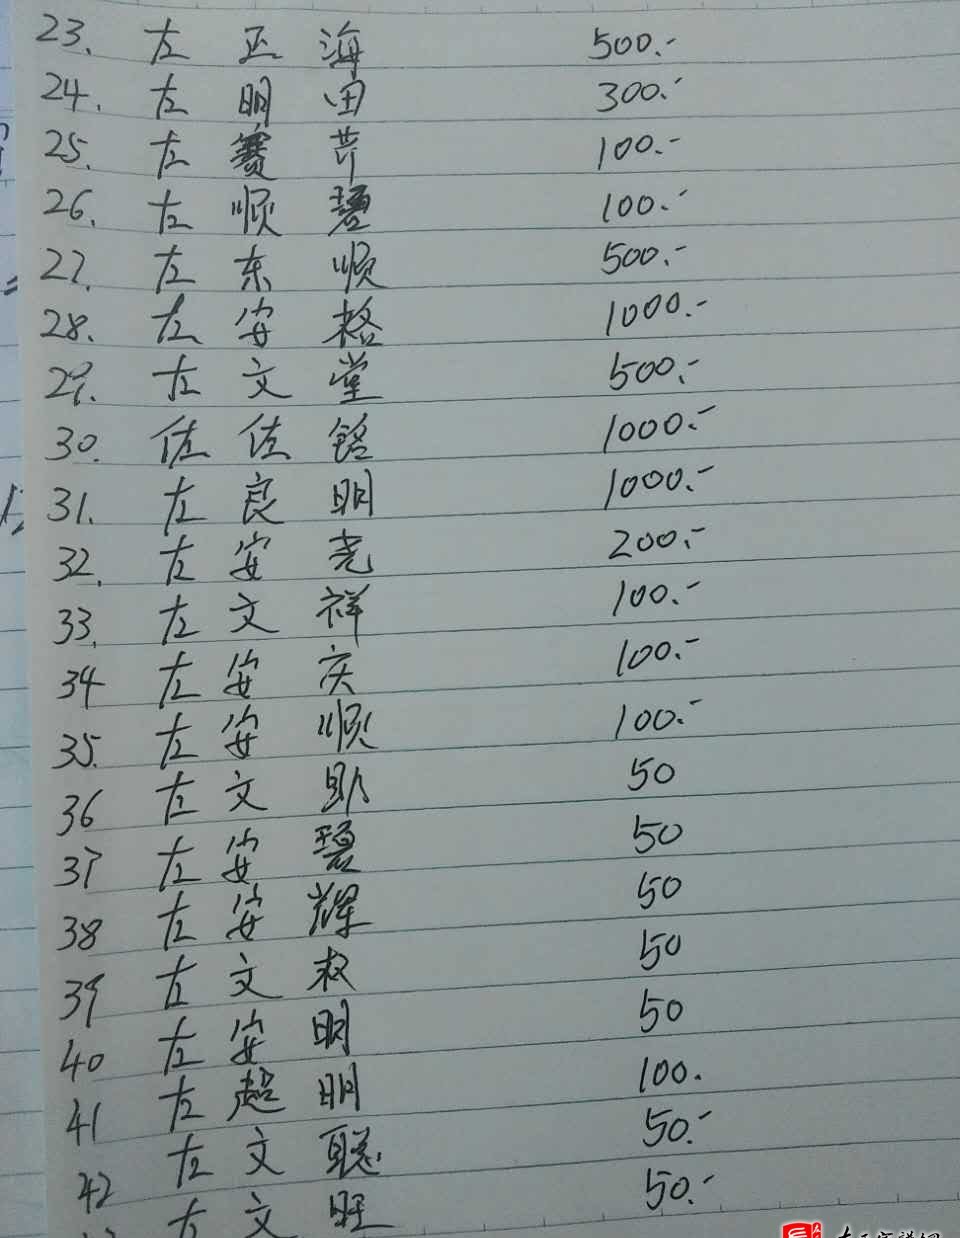 23. 左正海 500.-
24. 左明田 300.-
25. 左赛芹 100.-
26. 左顺碧 100.-
27. 左东顺 500.-
28. 左安格 1000.-
29. 左文堂 500.-
30. 佐佐铭 1000.-
31. 左良明 1000.-
32. 左安尧 200.-
33. 左文祥 100.-
34 左安庆 100.-
35. 左安顺 100.-
36 左文助 50
37 左安碧 50
38 左安辉 50
39 左文权 50
40 左安明 50
41 左超明 100.
42 左文聪 50.-
左文旺 50.-